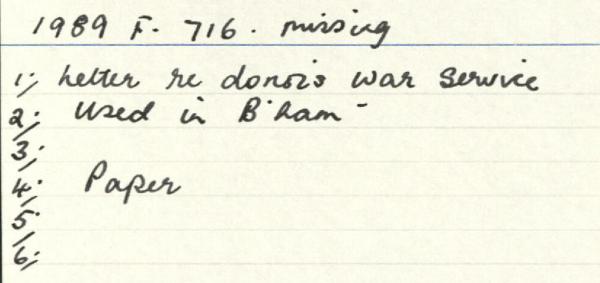 1989 F. 716. missing
1; Letter re donors war service
2; Used in B'ham -
3;
4; Paper
5;
6;